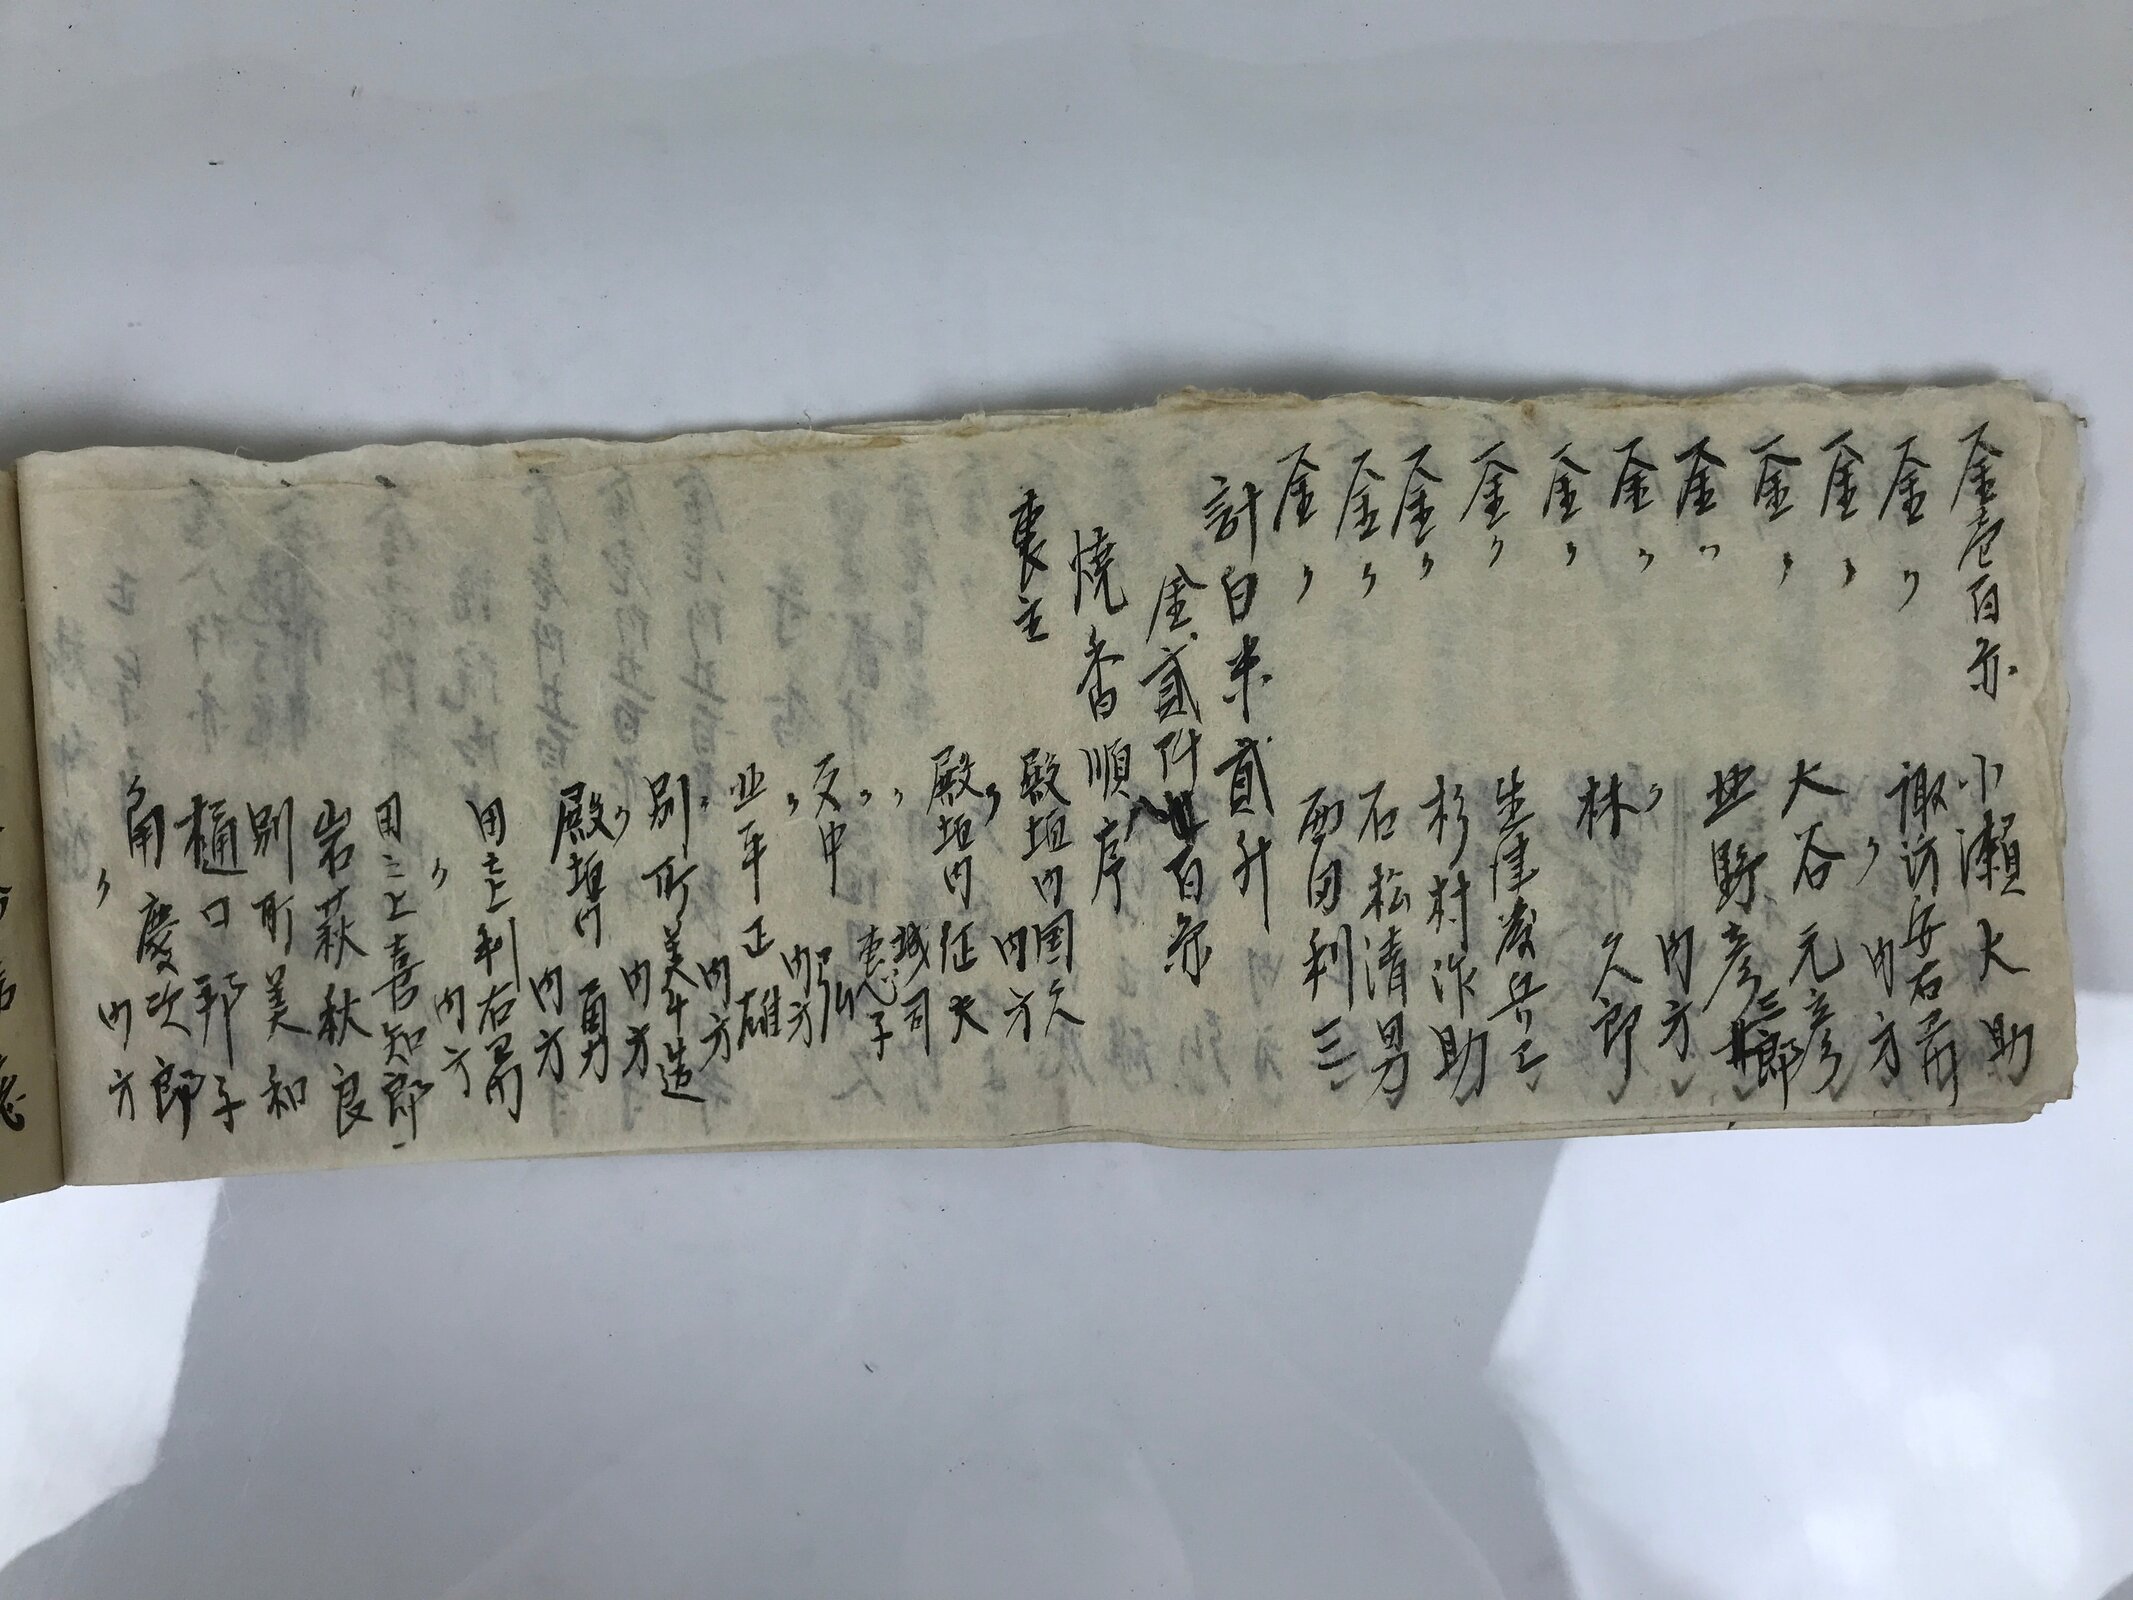 金壱百円 小瀬大助
金〃 諏訪安右エ門
金〃 〃 内方
金〃 大谷元彦
金〃 北野彦三郎
金〃 〃 内方
金〃 林 久郎
金〃 生津慶兵ヱ
金〃 杉村作助
金〃 石松清男
金〃 西田利三
計白米貳升
金貳阡 百円
焼香順序
喪主 殿垣内国久
〃 内方
殿垣内征夫
〃 城司
〃 恵子
田中 弘
〃 内方
平 正雄
〃 内方
別所美斗造
〃 内方
殿垣内 勇
〃 内方
田之上利右エ門
〃 内方
田之上喜知郎
岩萩秋良
別所美和
樋口邦子
角 慶次郎
〃 内方